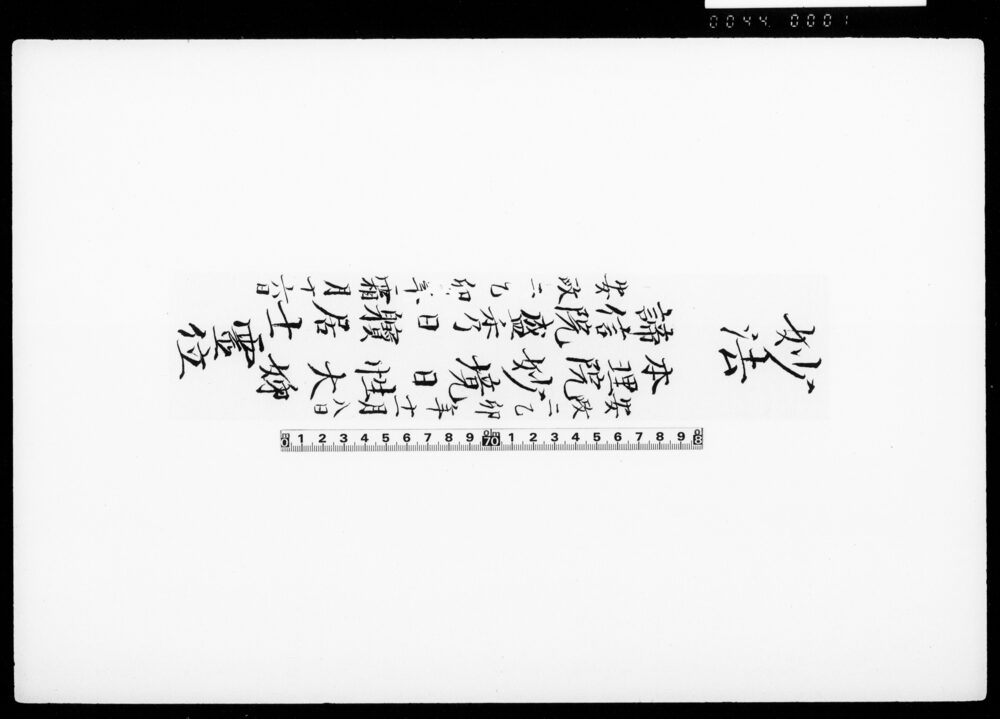 0044 0001
妙法
安政二乙卯年十一月八日
本理院妙境日性大姉
諦信院盛日居士
安政二乙卯年霜月十六日
靈位
0 1 2 3 4 5 6 7 8 9 70 1 2 3 4 5 6 7 8 9 8